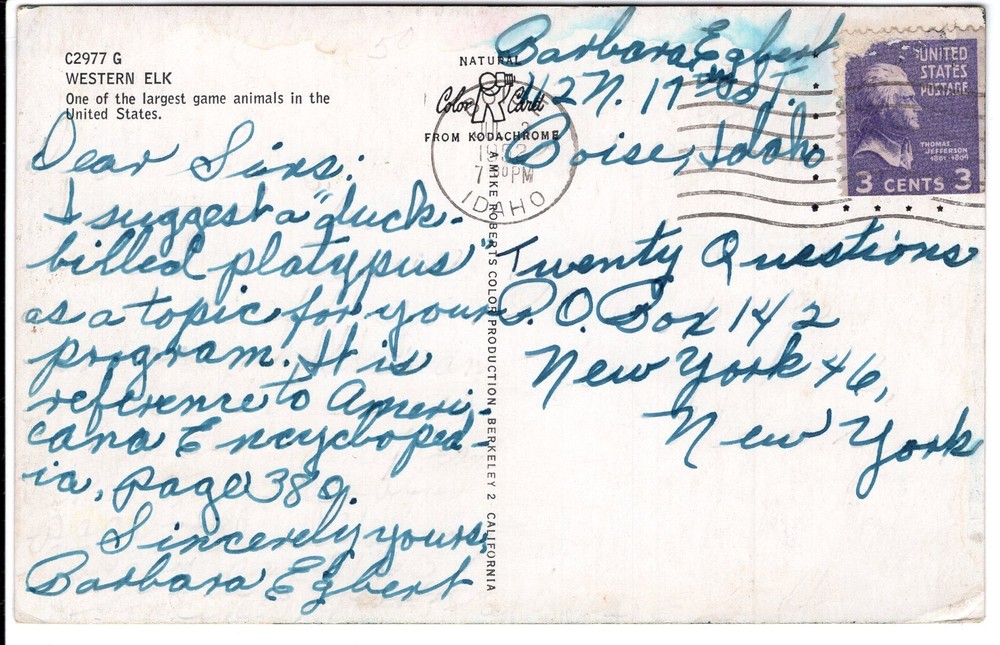 C2977 G
WESTERN ELK
One of the largest game animals in the
United States.
Dear Sirs:
I suggest a "duck-
billed platypus"
as a topic for your
program. It is
reference to Ameri-
cana Encycloped-
ia, page 389.
Sincerely yours,
Barbara Egbert
NATURAL
Color Card
FROM KODACHROME
A MIKE ROBERTS COLOR PRODUCTION, BERKELEY 2, CALIFORNIA
Barbara Egbert
N. 17th St.
Boise, Idaho
PM
IDAHO
UNITED
STATES
POSTAGE
THOMAS
JEFFERSON
1801-1809
3 CENTS 3
Twenty Questions
P.O. Box 142
New York 46,
New York